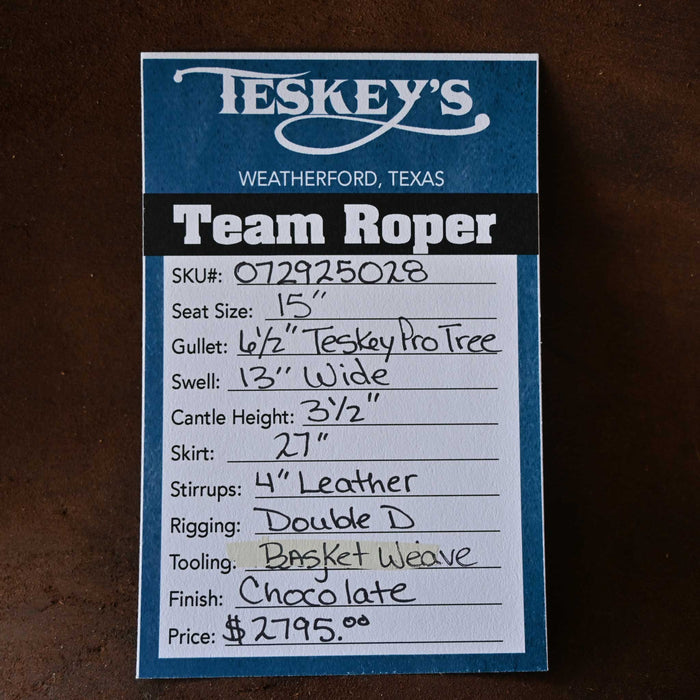 TESKEY'S
WEATHERFORD, TEXAS
Team Roper
SKU#: 072925028
Seat Size: 15"
Gullet: 6 1/2" Teskey Pro Tree
Swell: 13" Wide
Cantle Height: 3 1/2"
Skirt: 27"
Stirrups: 4" Leather
Rigging: Double D
Tooling: BASKet Weave
Finish: Chocolate
Price: $2795.00